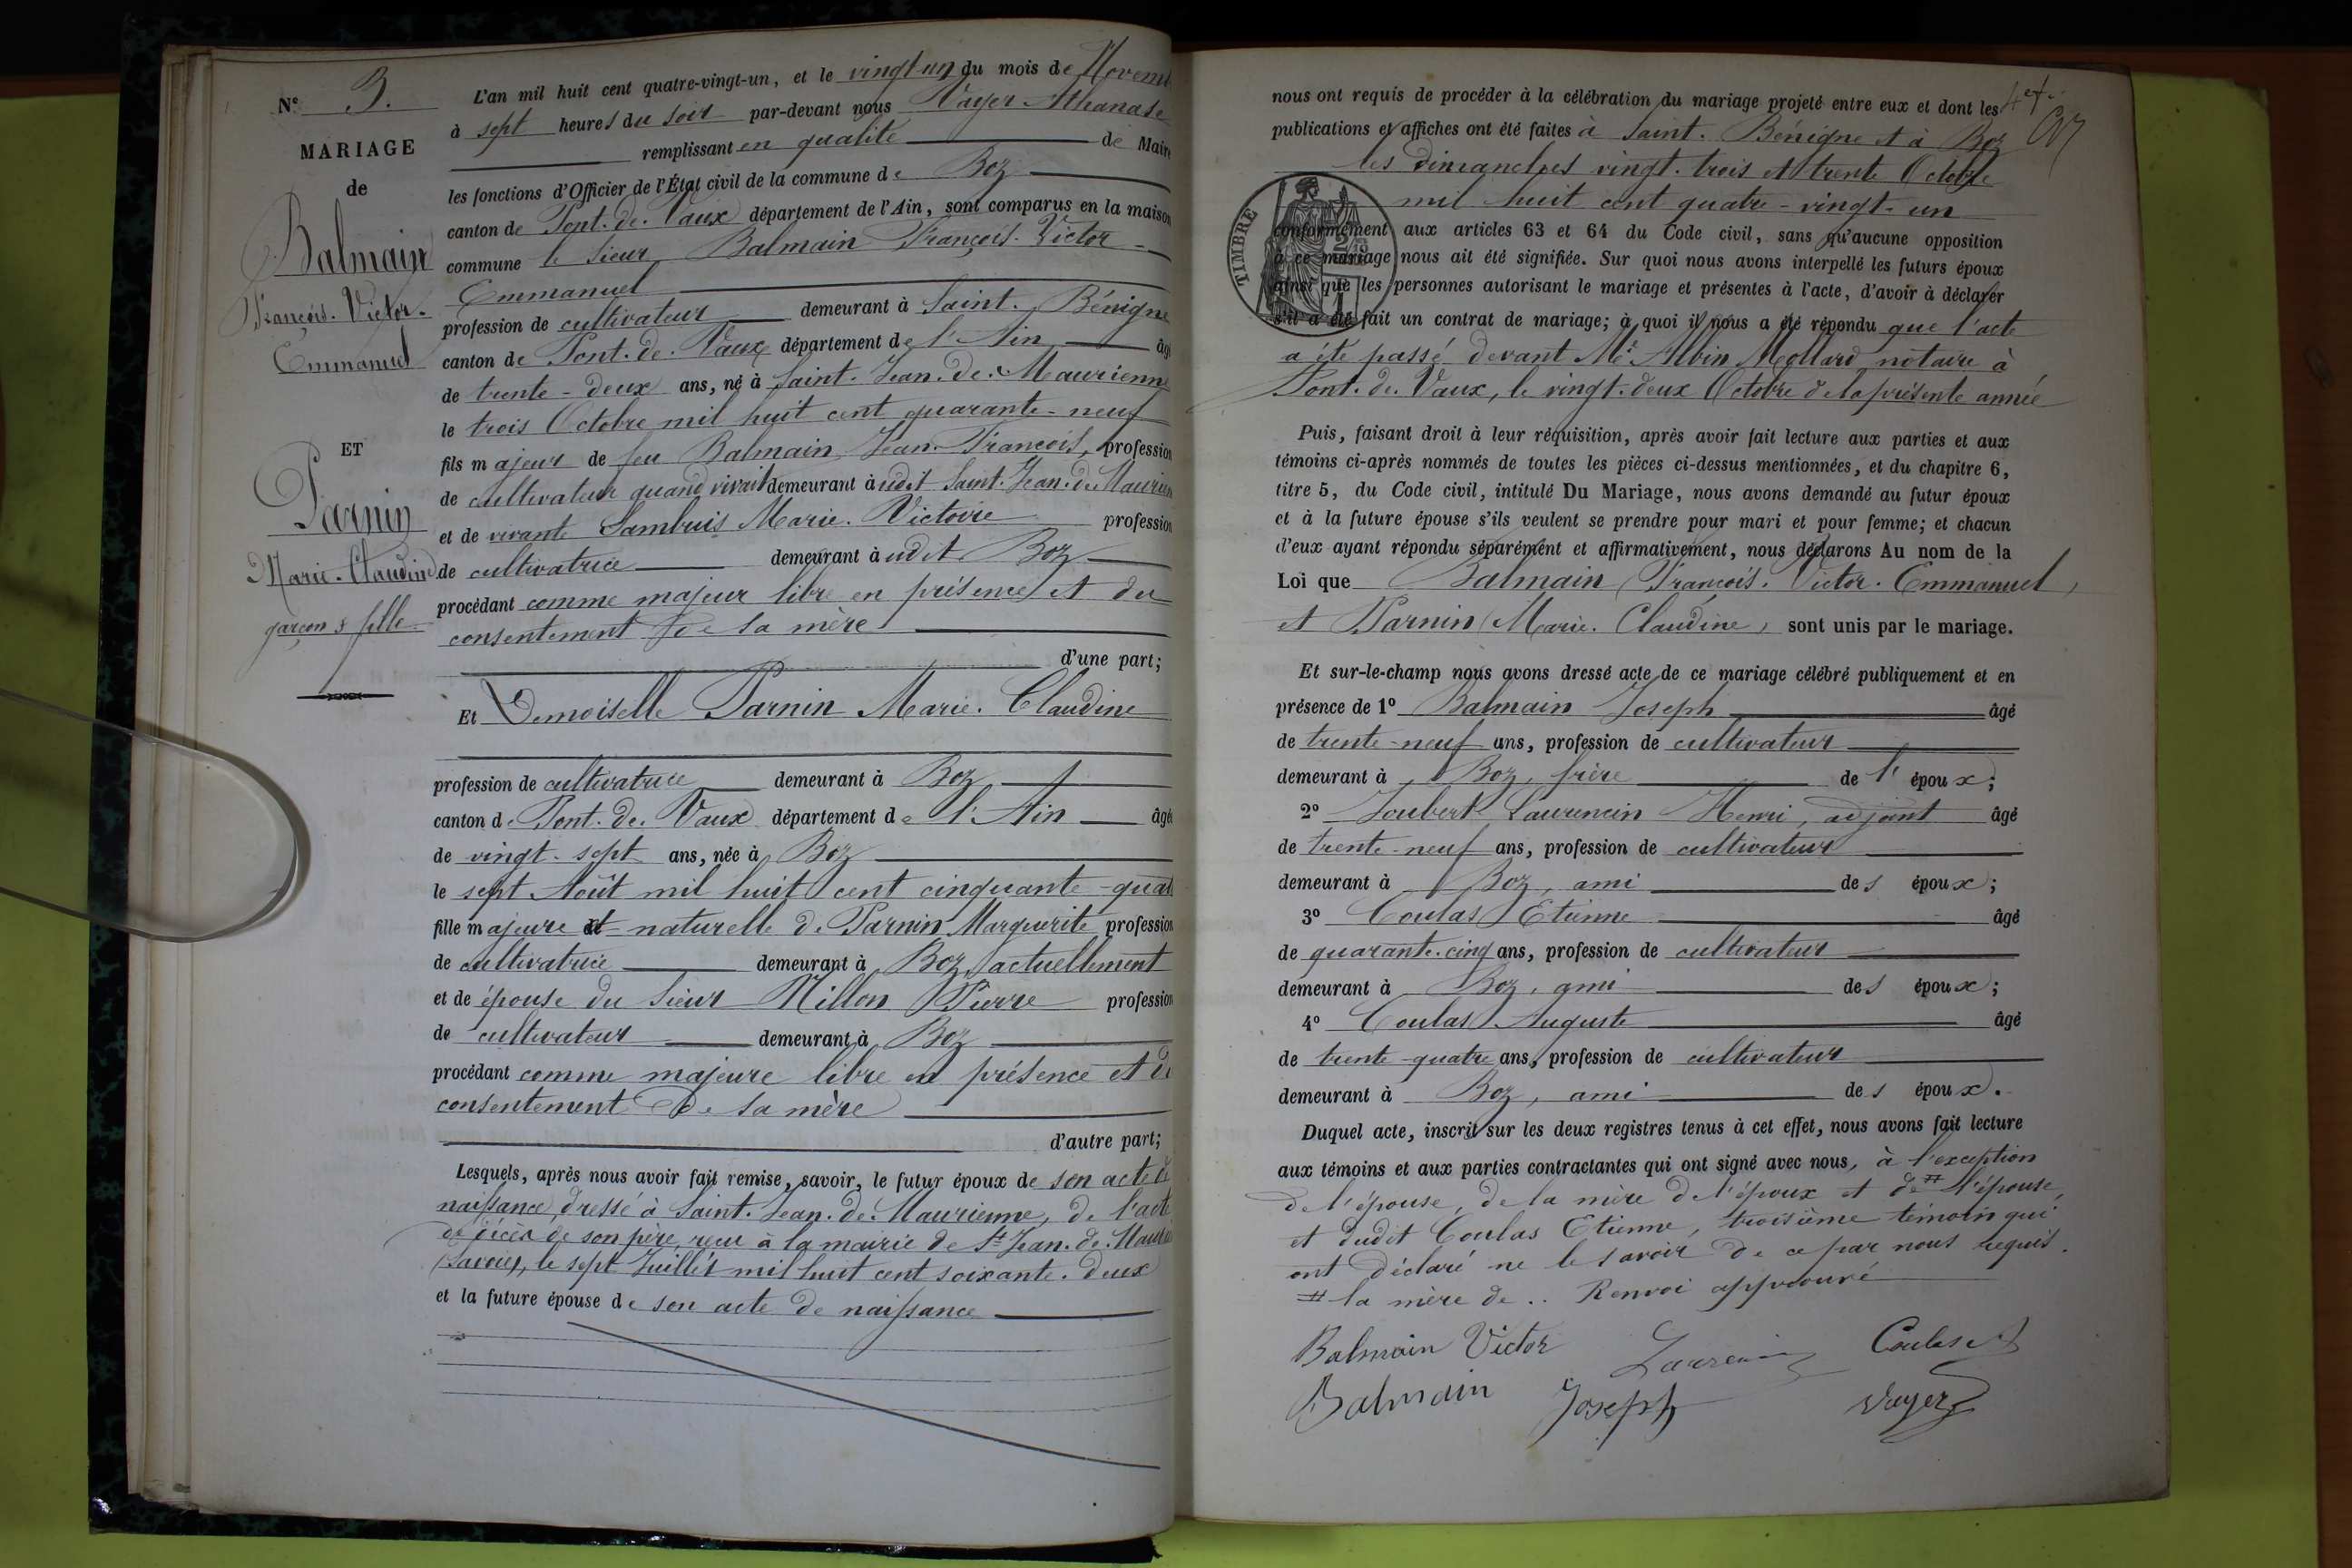 N° 3.
MARIAGE
de
Balmain
François. Victor.
Emmanuel
ET
Parnin
Marie. Claudine
garçon & fille
L'an mil huit cent quatre-vingt-un, et le vingt-un du mois de Novem
à sept heures du soir par-devant nous Vayer Athanase
remplissant en qualité de Maire
les fonctions d'Officier de l'État civil de la commune de Boz
canton de Pont. de. Vaux département de l'Ain, sont comparus en la maison
commune le sieur Balmain François. Victor
Emmanuel
profession de cultivateur demeurant à Saint. Bénigne
canton de Pont. de. Vaux département de l'Ain âgé
de trente-deux ans, né à Saint. Jean. de. Maurienne
le trois Octobre mil huit cent quarante-neuf
fils majeur de feu Balmain Jean-François, profession
de cultivateur quand vivait demeurant à udit Saint. Jean. de Maurien
et de vivante Sambuis Marie. Victoire profession
de cultivatrice demeurant à udit Boz
procédant comme majeur libre en présence et du
consentement de sa mère
d'une part;
Et Demoiselle Parnin Marie. Claudine
profession de cultivatrice demeurant à Boz
canton de Pont. de. Vaux département de l'Ain âgée
de vingt-sept ans, née à Boz
le sept Août mil huit cent cinquante-quat
fille majeure et naturelle de Parnin Marguerite profession
de cultivatrice demeurant à Boz, actuellement
et de épouse du sieur Millon Pierre profession
de cultivateur demeurant à Boz
procédant comme majeure libre en présence et du
consentement de sa mère
d'autre part;
Lesquels, après nous avoir fait remise, savoir, le futur époux de son acte de
naissance, dressé à Saint. Jean. de. Maurienne, de l'acte
de décès de son père, reçu à la mairie de St Jean. de. Mauri
(Savoie), le sept Juillet mil huit cent soixante. deux
et la future épouse de son acte de naissance
nous ont requis de procéder à la célébration du mariage projeté entre eux et dont les
publications et affiches ont été faites à Saint. Bénigne et à Boz
les dimanches vingt-trois et trente Octobre
mil huit cent quatre-vingt-un
TIMBRE
conformément aux articles 63 et 64 du Code civil, sans qu'aucune opposition
à ce mariage nous ait été signifiée. Sur quoi nous avons interpellé les futurs époux
ainsi que les personnes autorisant le mariage et présentes à l'acte, d'avoir à déclarer
s'il a été fait un contrat de mariage; à quoi il nous a été répondu que l'acte
a été passé devant Me Albin Mollard notaire à
Pont. de. Vaux, le vingt-deux Octobre de la présente année
Puis, faisant droit à leur réquisition, après avoir fait lecture aux parties et aux
témoins ci-après nommés de toutes les pièces ci-dessus mentionnées, et du chapitre 6,
titre 5, du Code civil, intitulé Du Mariage, nous avons demandé au futur époux
et à la future épouse s'ils veulent se prendre pour mari et pour femme; et chacun
d'eux ayant répondu séparément et affirmativement, nous déclarons Au nom de la
Loi que Balmain François. Victor. Emmanuel,
et Parnin Marie. Claudine, sont unis par le mariage.
Et sur-le-champ nous avons dressé acte de ce mariage célébré publiquement et en
présence de 1° Balmain Joseph âgé
de trente-neuf ans, profession de cultivateur
demeurant à Boz, frère de l' époux;
2° Joubert Laurencin Henri, adjoint âgé
de trente-neuf ans, profession de cultivateur
demeurant à Boz, ami des époux;
3° Coulas Etienne âgé
de quarante-cinq ans, profession de cultivateur
demeurant à Boz, ami des époux;
4° Coulas Auguste âgé
de trente-quatre ans, profession de cultivateur
demeurant à Boz, ami des époux.
Duquel acte, inscrit sur les deux registres tenus à cet effet, nous avons fait lecture
aux témoins et aux parties contractantes qui ont signé avec nous, à l'exception
de l'épouse, de la mère de l'époux et de # l'épouse,
et dudit Coulas Etienne, troisième témoin qui
ont déclaré ne le savoir de ce par nous requis.
# la mère de .. Renvoi approuvé
Balmain Victor Laurencin Coulas
Balmain Joseph Vayer